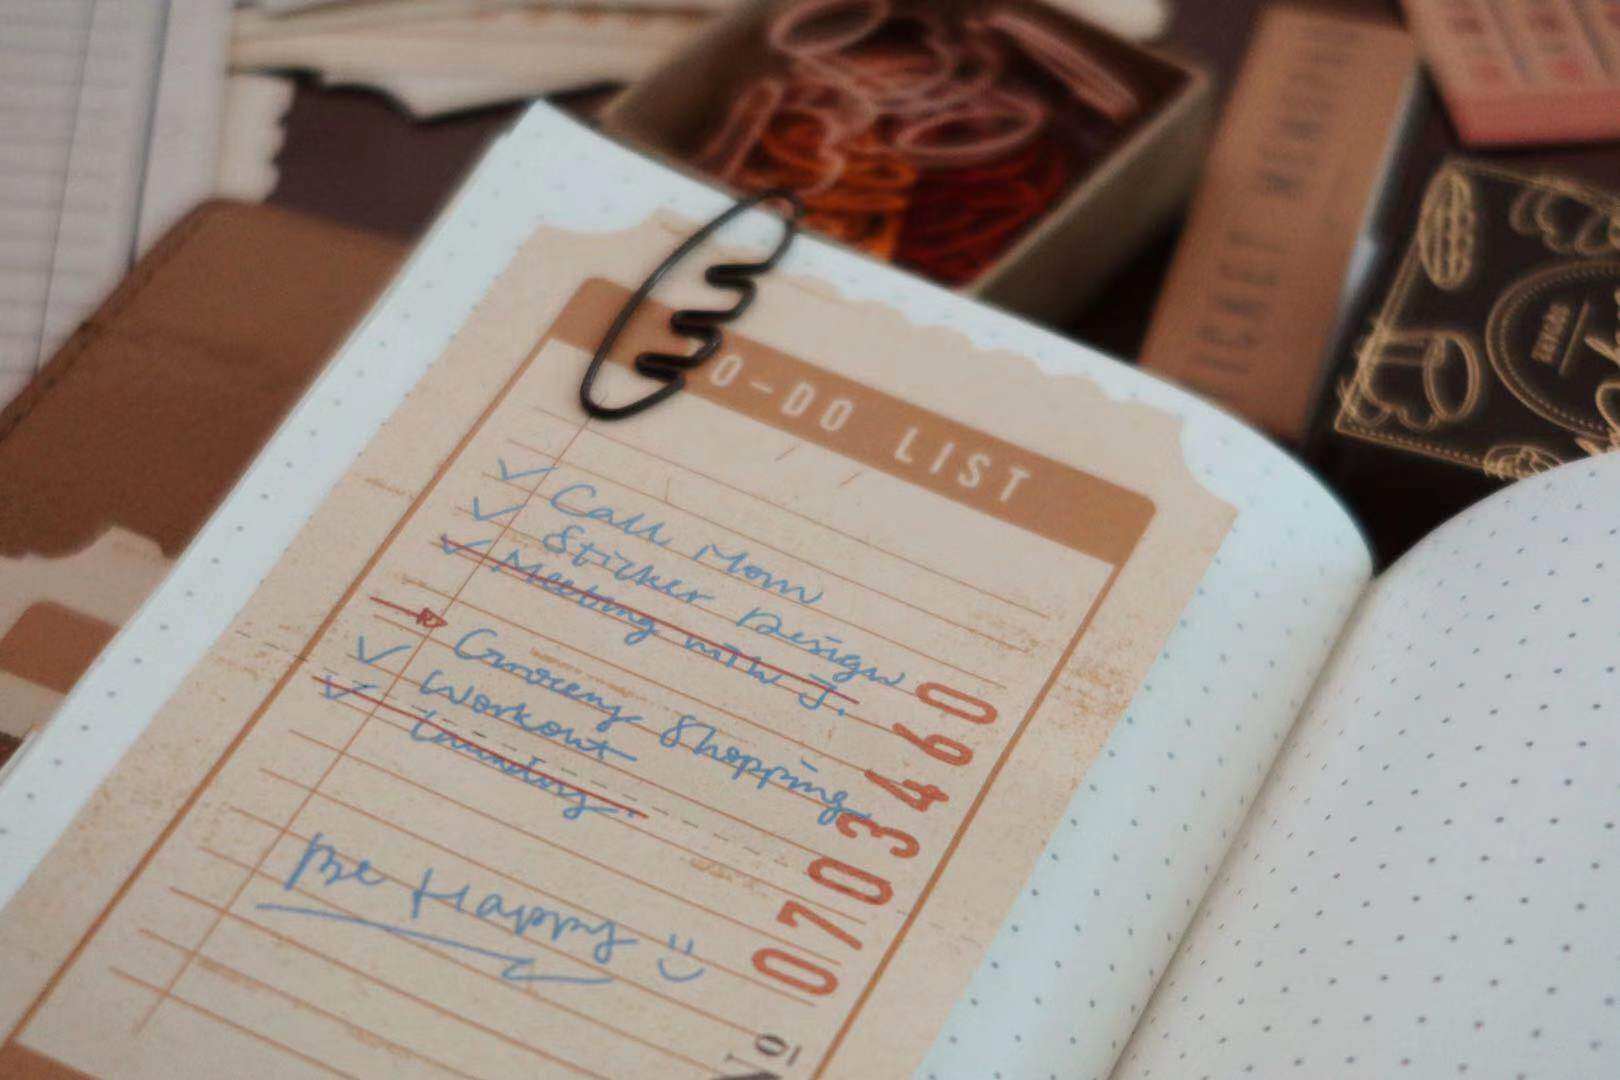 O-DO LIST
✓ Call Mom
✓ Sticker Design
✓ Meeting with J.
→ Grocery Shopping
✓ Workout
✓ Laundry.
Be Happy :)
No 0703460
TICKET MEMO